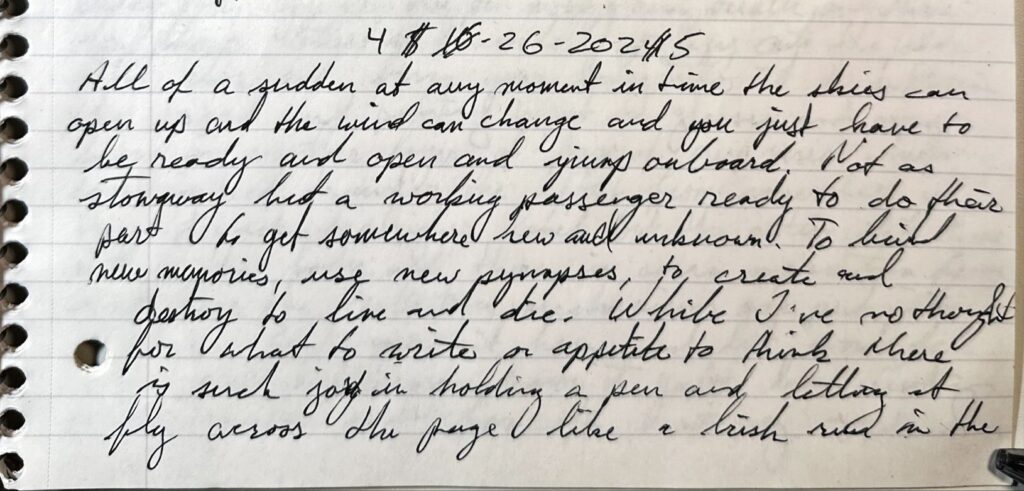 4 -26-2025
All of a sudden at any moment in time the skies can
open up and the wind can change and you just have to
be ready and open and jump onboard. Not as
stowaway but a working passenger ready to do their
part to get somewhere new and unknown. To
new memories, use new synapses, to create and
destroy to live and die. While I've no thought
for what to write or appetite to think there
is such joy in holding a pen and letting it
fly across the page like a brisk run in the